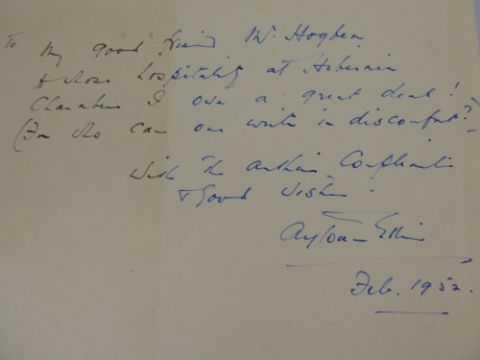 To my good friend Mr Hogben
to whose hospitality at Arberia
Chambers I owe a great deal!
(For who can one write in discomfort?)
With the Author's Compliments
& Good Wishes.
Aytoun Ellis
Feb. 1952.